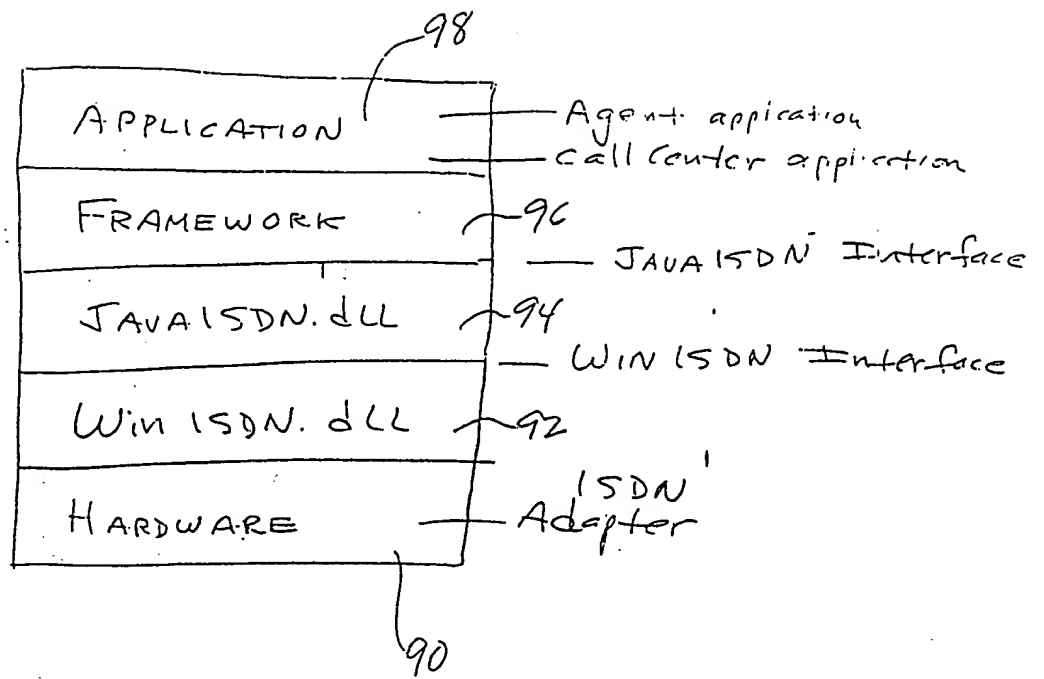 98
APPLICATION
Agent appication
Call Center application
FRAMEWORK
96
JAVA ISDN Interface
JAVA ISDN.dLL
94
WIN ISDN Interface
Win ISDN.dLL
92
HARDWARE
ISDN
Adapter
90